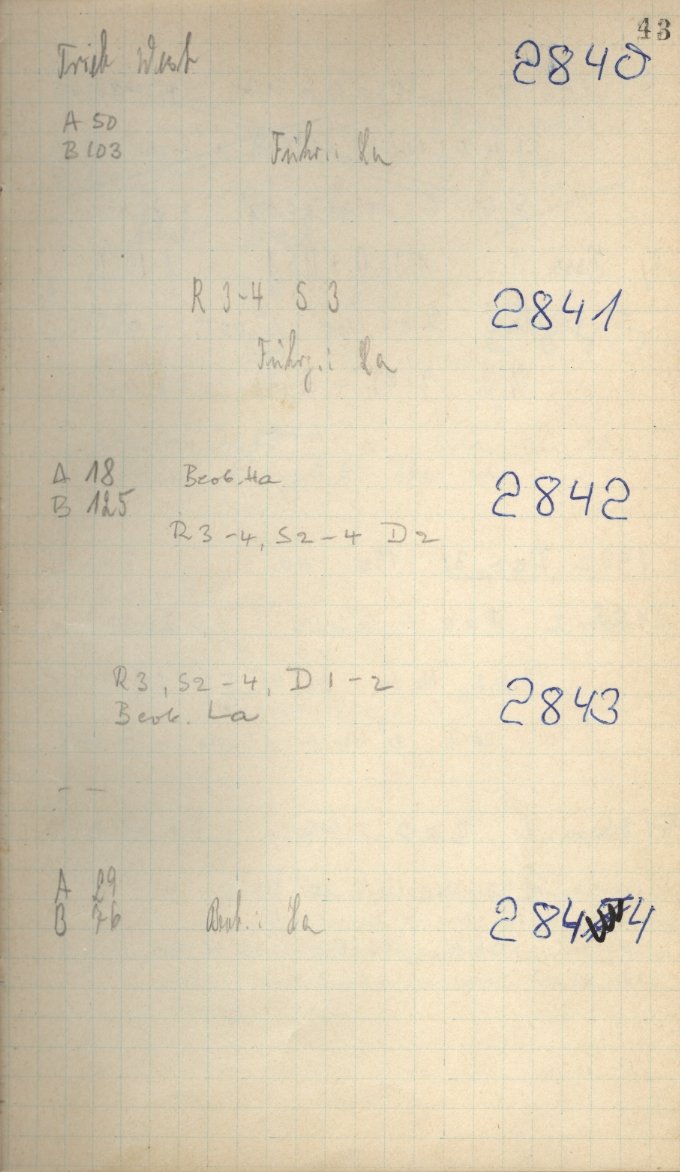 43
Trieb West 2840
A 50
B 103 Führ.: La
R 3-4 S 3 2841
Führg.: La
A 18 Beob. Ha 2842
B 125
R 3-4, S 2-4 D 2
R 3, S 2-4, D 1-2 2843
Beob. La
--
A 29
B 76 Beob.: La 2844